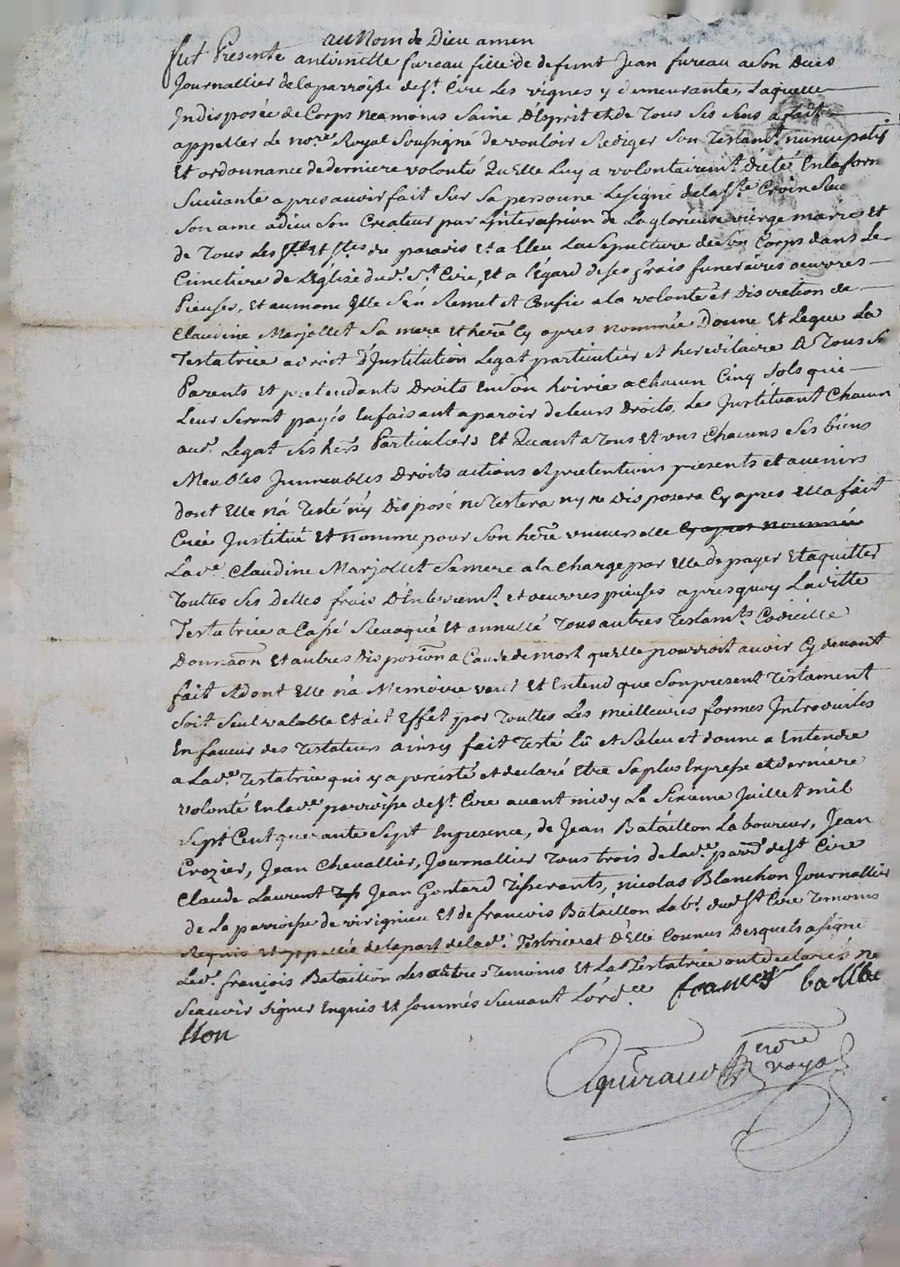 au Nom de Dieu amen
fut Presente antoinette fureau fille de defunt Jean fureau a Son
Journallier de la parroisse de St. Cire Les vignes y demeurante, Laquelle
Indisposée de Corps Neamoins Saine D'Esprit et de Tous Ses Sens a fait
appeller Le nore. Royal Soussigné de vouloir Rediger Son Testamt. nuncupatif
Et ordonnance de derniere volonté Qu'Elle Luy a volontairemt. dicté En la form
Suivante apres avoir fait Sur Sa personne Le Signe de la Ste. Croix
Son ame a dieu Son Createur par L'intercession de La glorieuse vierge marie et
de Tous Les Sts et Stes. du paradis Et a Eleu La Sepulture de Son Corps dans Le
Cimetiere de L'Eglise dud. St. Cire, Et a l'Egard de Ses frais funeraires oeuvres
Pieuses, Et aumone Elle S'en Remet et Confie a la volonté et Discretion de
Claudine Marjollet Sa mere Et here. Cy apres nommée, Donne Et Legue La
Testatrice a droit D'Institution Legat particulier et hereditaire a Tous Se
Parents Et pretendants Droits En Son hoirie a chacun Cinq Sols qui
Leur Seront payés En faisant aparoir de leurs Droits, Les Instituant Chacun
aud. Legat Ses hers. Particuliers Et Quant a Tous Et uns Chacuns Ses biens
Meubles Immeubles Droits actions et pretentions presents et avenirs
dont Elle n'a Testé n'y Disposé ne Testera ny ne Disposera Cy apres Ella fait
Créé Institué Et Nomme pour Son here. universelle Cy apres nommée
Lade. Claudine Marjollet Sa mere a la Charge par Elle de payer Et aquitter
Touttes Ses Dettes frais D'Enterremt. et oeuvres pieuses apres quoy Laditte
Testatrice a Cassé Revoqué Et annullé Tous autres Testamts. Codicille
Donnaon Et autres Disposition a Cause de mort qu'elle pourroit avoir Cy devant
fait et dont Elle n'a Memoire veut Et Entend que Son present Testament
Soit Seul valable Et ait Effet par Touttes Les meilleures formes Introduites
En faveur des Testateurs ainsy fait Testé Lû et Releu et donné a Entendre
a Lade. Testatrice qui y a percisté et declaré Etre Sa plus Expresse et derniere
volonté En lade. parroisse de St. Cire avant midy Le Sixieme Juillet mil
Sept Cent quarante Sept En presence, de Jean Bataillon Laboureur, Jean
Crozier, Jean Chevallier, Journallier Tous trois de lade. de St Cire
Claude Laurent Jean Gontard Tisserants, nicolas Blanchon Journallier
de La parroisse de virignieu Et de francois Bataillon Labr. dud. St Cire Temoins
Requis et de la part de lade. Testrice et D'Elle Connus Desquels a Signé
Led. françois Bataillon Les autres Temoins Et La Testatrice ont declarés ne
Scavoir Signer Enquis Et Sommés Suivant L'ordce francois batta
llon
nore
royal